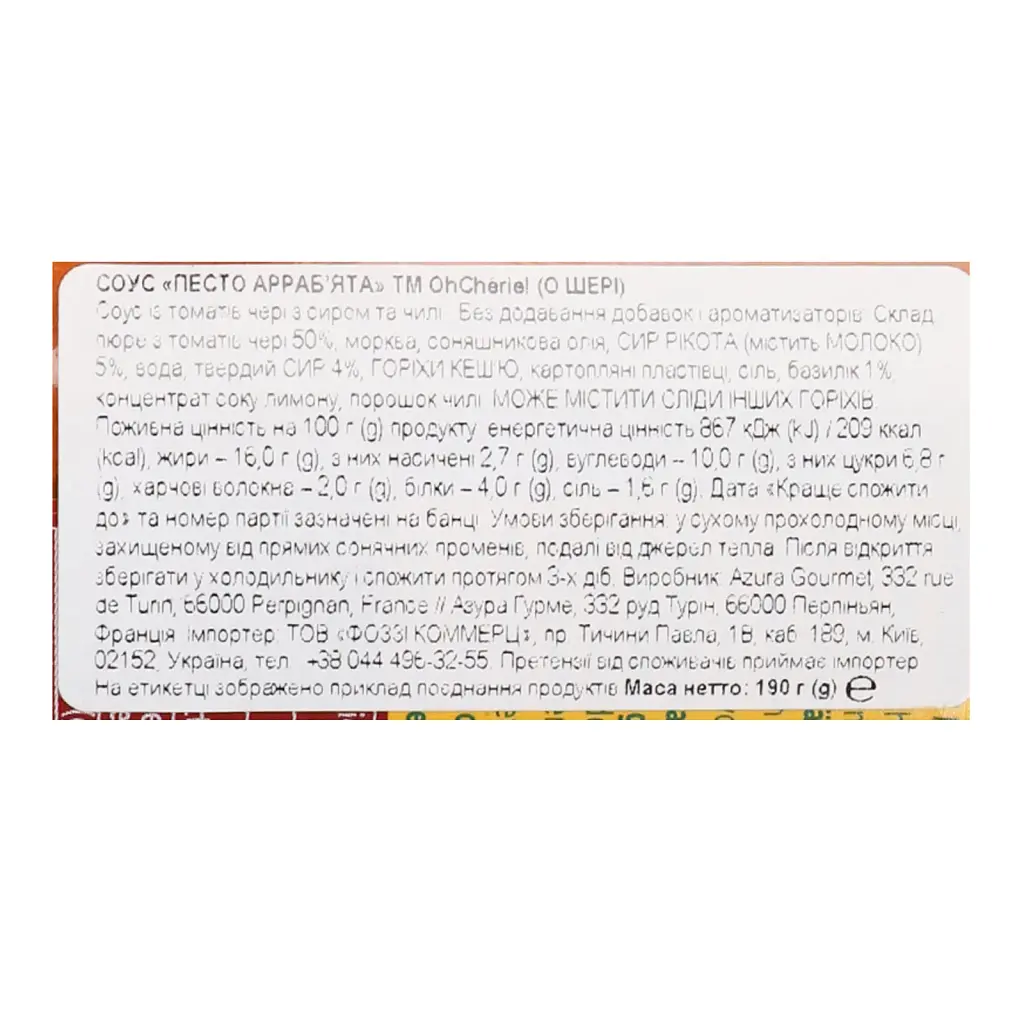 СОУС «ПЕСТО АРРАБ'ЯТА» ТМ OhCherie! (О ШЕРІ)
Соус із томатів чері з сиром та чилі. Без додавання добавок і ароматизаторів. Склад:
пюре з томатів чері 50%, морква, соняшникова олія, СИР РІКОТА (містить МОЛОКО)
5%, вода, твердий СИР 4%, ГОРІХИ КЕШ'Ю, картопляні пластівці, сіль, базилік 1%,
концентрат соку лимону, порошок чилі. МОЖЕ МІСТИТИ СЛІДИ ІНШИХ ГОРІХІВ.
Поживна цінність на 100 г (g) продукту: енергетична цінність 867 кДж (kJ) / 209 ккал
(kcal), жири – 16,0 г (g), з них насичені 2,7 г (g), вуглеводи – 10,0 г (g), з них цукри 6,8 г
(g), харчові волокна – 2,0 г (g), білки – 4,0 г (g), сіль – 1,6 г (g). Дата «Краще спожити
до» та номер партії зазначені на банці. Умови зберігання: у сухому прохолодному місці,
захищеному від прямих сонячних променів, подалі від джерел тепла. Після відкриття
зберігати у холодильнику і спожити протягом 3-х діб. Виробник: Azura Gourmet, 332 rue
de Turin, 66000 Perpignan, France // Азура Гурме, 332 руд Турін, 66000 Перпіньян,
Франція. Імпортер: ТОВ «ФОЗЗІ КОММЕРЦ», пр. Тичини Павла, 1В, каб. 189, м. Київ,
02152, Україна, тел.: +38 044 496-32-55. Претензії від споживачів приймає імпортер.
На етикетці зображено приклад поєднання продуктів. Маса нетто: 190 г (g) ℮